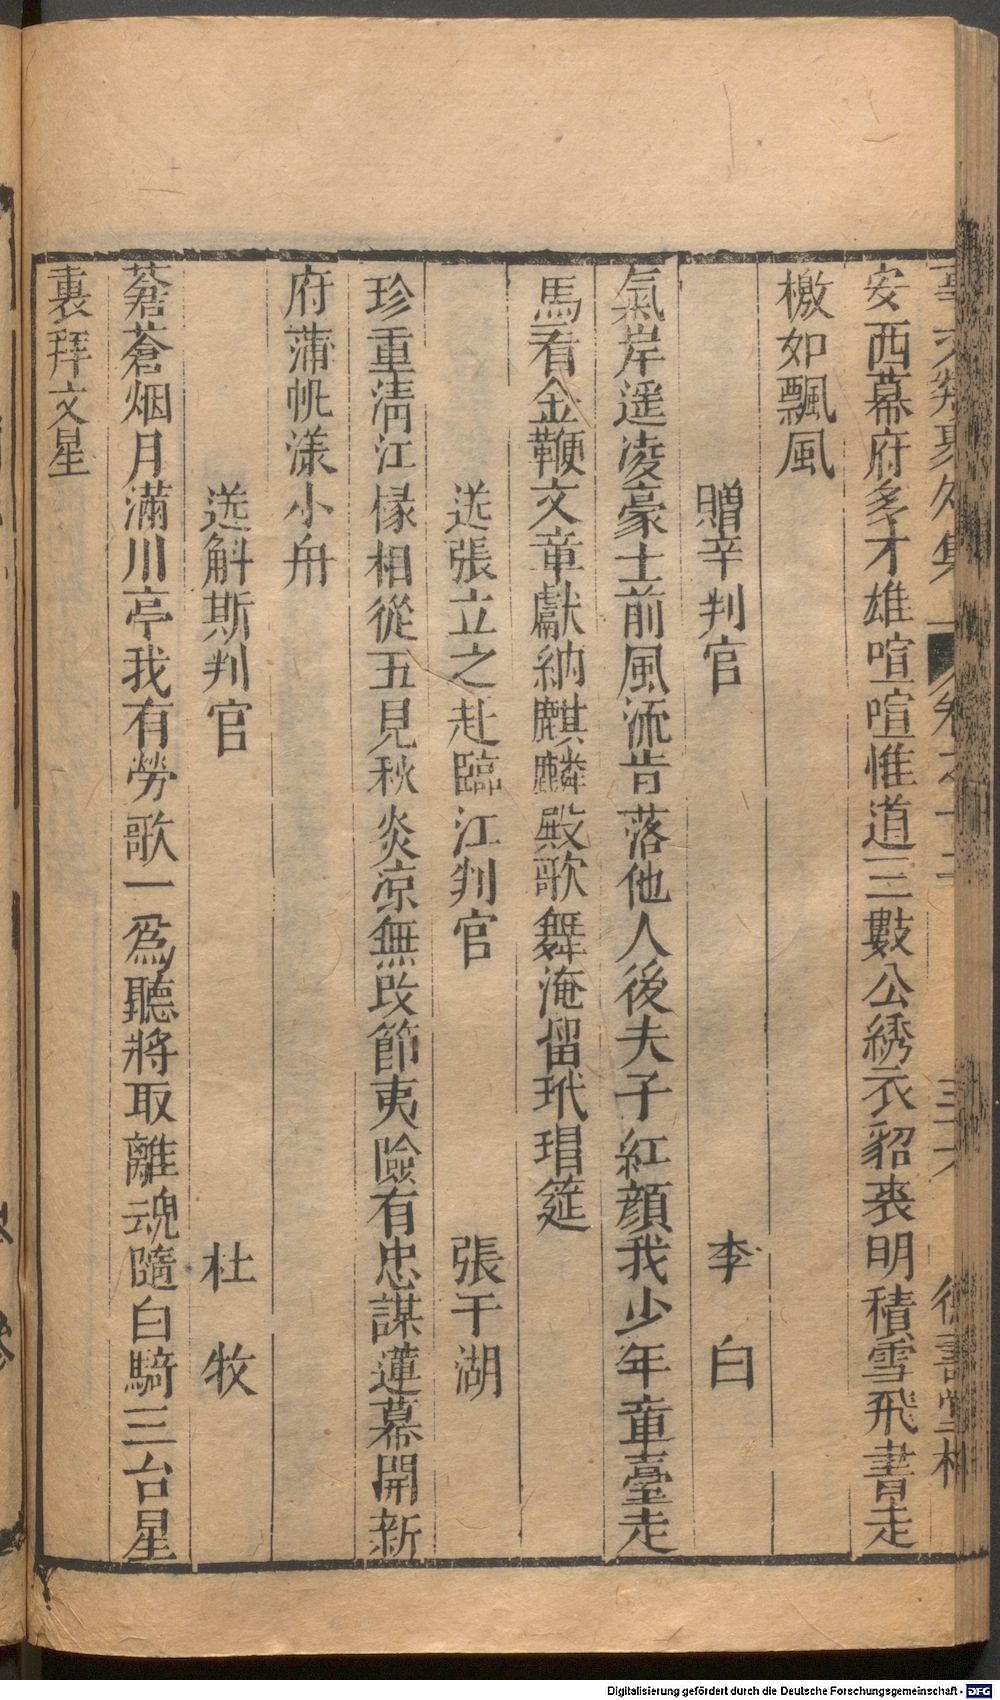 安西幕府多才雄喧喧惟道三數公綉衣貂裘明積雪飛書走
檄如飄風
贈辛判官 李白
氣岸遥凌豪士前風流肯落他人後夫子紅顔我少年章臺走
馬看金鞭文章獻納麒麟殿歌舞淹留玳瑁筵
送張立之赴臨江判官 張于湖
珍重清江掾相從五見秋炎凉無改節夷險有忠謀蓮幕開新
府蒲帆漾小舟
送斛斯判官 杜牧
蒼蒼烟月滿川亭我有勞歌一爲聽將取離魂隨白騎三台星
裏拜文星
Digitalisierung gefördert durch die Deutsche Forschungsgemeinschaft - DFG